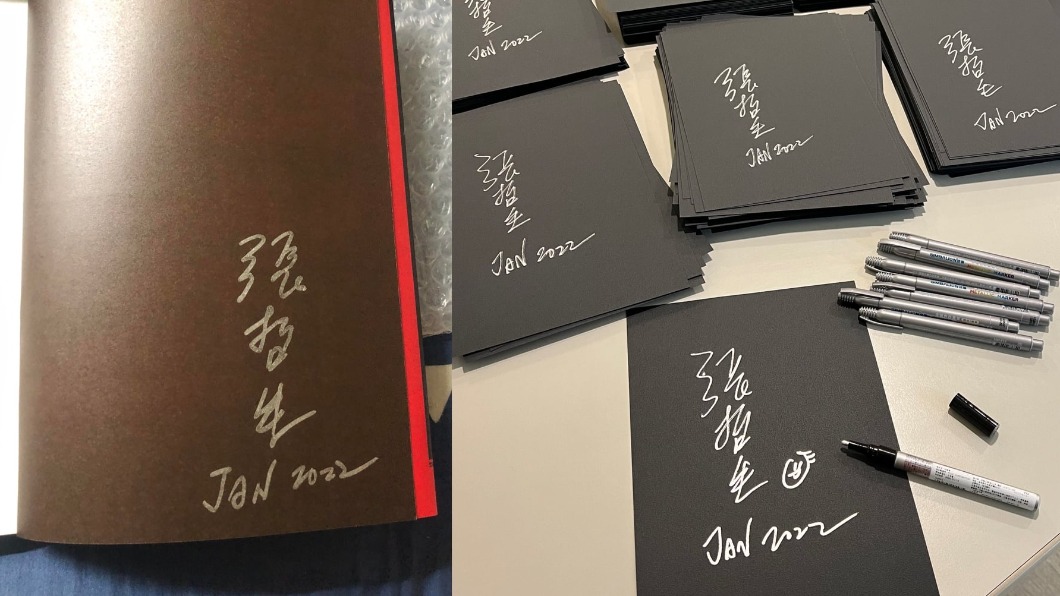 張哲生
JAN 2022
哲生
JAN 2022
張哲生
JAN 2022
張哲生
JAN 2022
張哲生
JAN 2022
張哲生
JAN 2022
MARKER